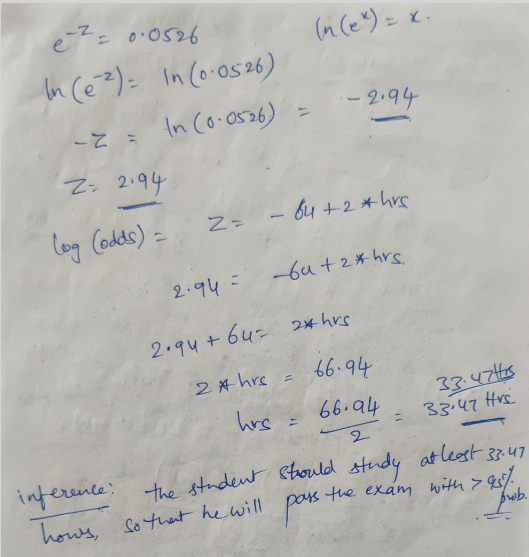 e^-z = 0.0526 ln(e^x) = x.
ln(e^-z) = ln(0.0526)
-z = ln(0.0526) = -2.94
z = 2.94
log(odds) = z = -64 + 2 * hrs
2.94 = -64 + 2 * hrs.
2.94 + 64 = 2 * hrs
2 * hrs = 66.94
33.47 Hrs
hrs = 66.94 / 2 = 33.47 Hrs
inference: the student should study at least 33.47
hours, so that he will pass the exam with > 95% prob.